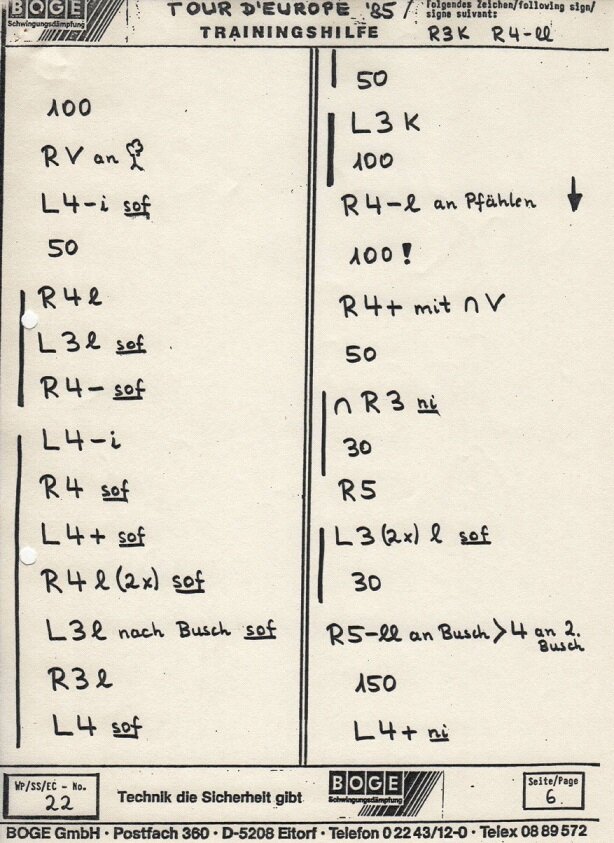 BOGE
Schwingungsdämpfung
TOUR D'EUROPE '85/
TRAININGSHILFE
folgendes Zeichen/following sign/
signe suivant:
R3K R4-ll
100
RV an
L4-i sof
50
R4l
L3l sof
R4- sof
L4-i
R4 sof
L4+ sof
R4l (2x) sof
L3l nach Busch sof
R3l
L4 sof
50
L3K
100
R4-l an Pfählen ↓
100!
R4+ mit ∩ V
50
∩ R3 ni
30
R5
L3 (2x) l sof
30
R5-ll an Busch > 4 an 2.
Busch
150
L4+ ni
WP/SS/EC - No.
22
Technik die Sicherheit gibt
BOGE
Schwingungsdämpfung
Seite/Page
6
BOGE GmbH · Postfach 360 · D-5208 Eitorf · Telefon 0 22 43/12-0 · Telex 08 89 572